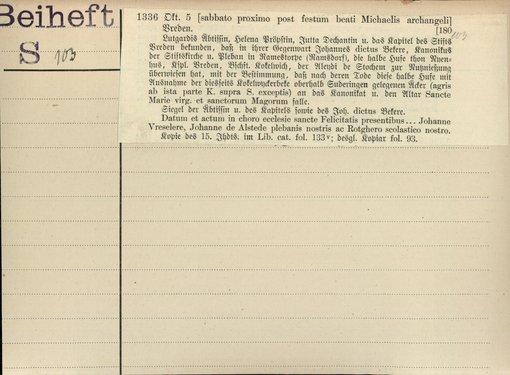 Beiheft
S 103
1336 Okt. 5 [sabbato proximo post festum beati Michaelis archangeli]
Vreden. [180
103
Lutgardis Äbtissin, Helena Pröpstin, Jutta Dechantin u. das Kapitel des Stifts
Vreden bekunden, daß in ihrer Gegenwart Johannes dictus Bekere, Kanonikus
der Stiftskirche u. Pleban in Ramestorpe (Ramsdorf), die halbe Hufe thon Nuen-
hus, Kspl. Vreden, Bschft. Kokelwich, der Aleydi de Stochem zur Nutznießung
überwiesen hat, mit der Bestimmung, daß nach deren Tode diese halbe Hufe mit
Ausnahme der diesseits Kokelwykerbeke oberhalb Suderingen gelegenen Äcker (agris
ab ista parte K. supra S. exceptis) an das Kanonikat u. den Altar Sancte
Marie virg. et sanctorum Magorum falle.
Siegel der Äbtissin u. des Kapitels sowie des Joh. dictus Bekere.
Datum et actum in choro ecclesie sancte Felicitatis presentibus... Johanne
Vreselere, Johanne de Alstede plebanis nostris ac Rotghero scolastico nostro.
Kopie des 15. Jhdts. im Lib. cat. fol. 133v; desgl. Kopiar fol. 93.